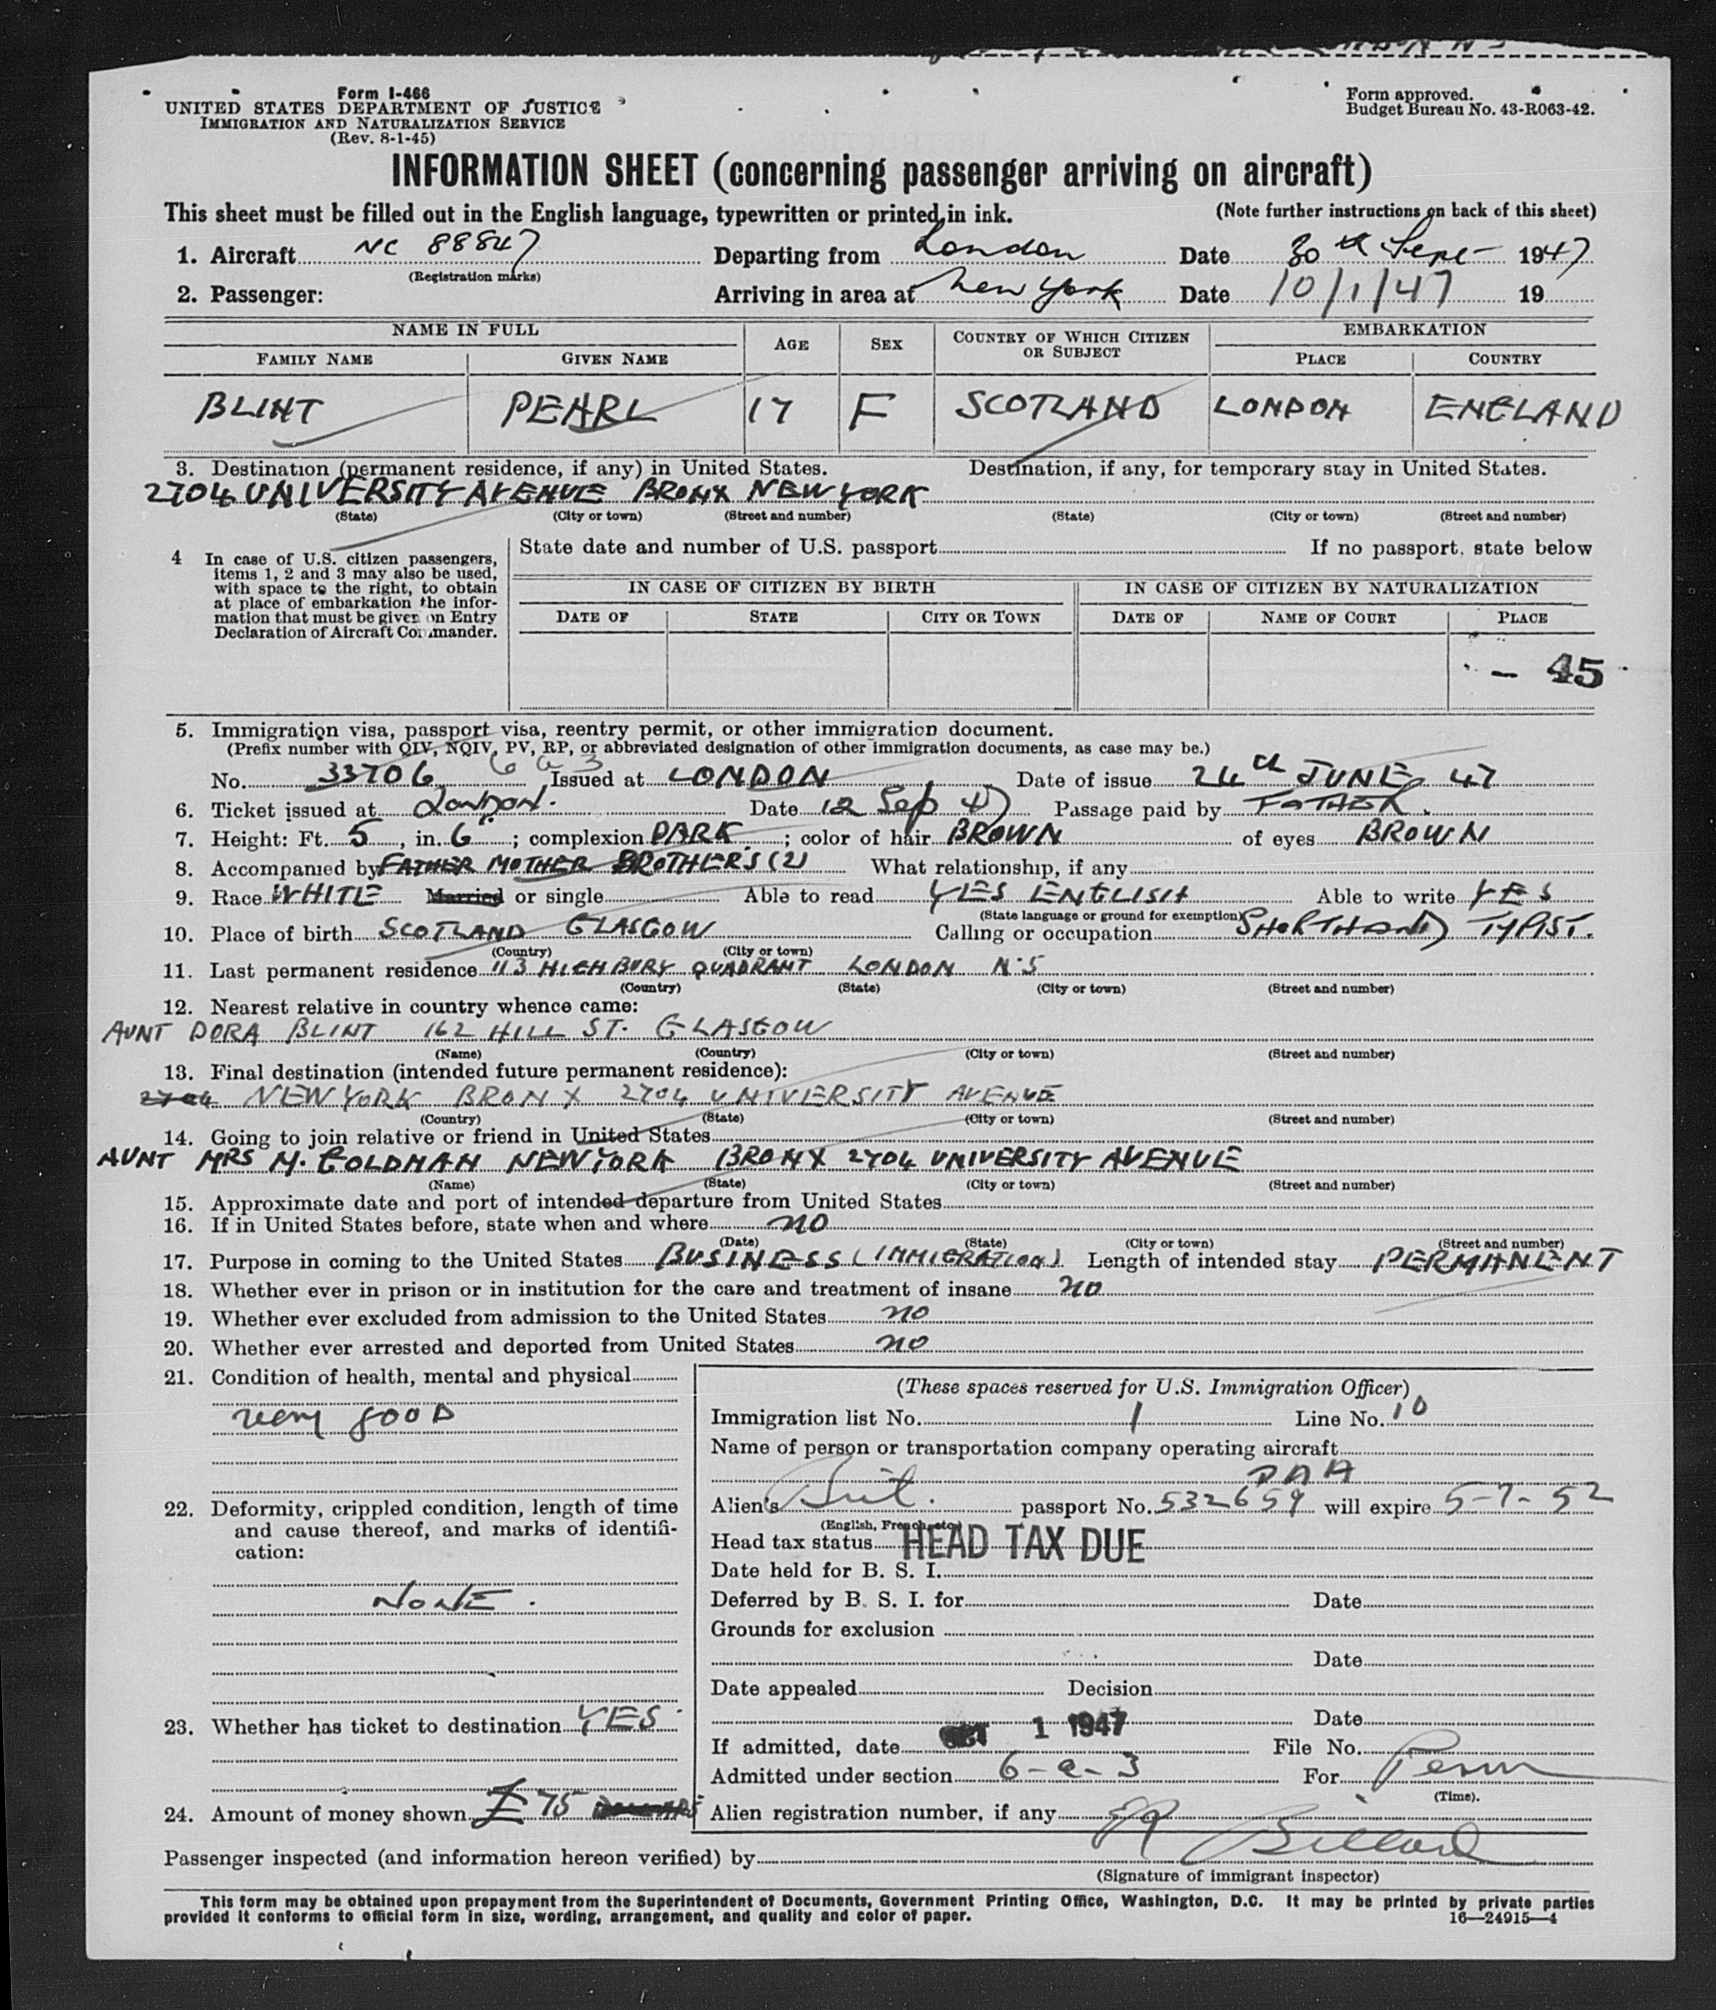 Form I-466
UNITED STATES DEPARTMENT OF JUSTICE
IMMIGRATION AND NATURALIZATION SERVICE
(Rev. 8-1-45)
Form approved.
Budget Bureau No. 43-R063-42.
INFORMATION SHEET (concerning passenger arriving on aircraft)
This sheet must be filled out in the English language, typewritten or printed in ink. (Note further instructions on back of this sheet)
1. Aircraft NC 88847 Departing from London Date 30th Sept 1947
(Registration marks)
2. Passenger: Arriving in area at New York Date 10/1/47 19
NAME IN FULL AGE SEX COUNTRY OF WHICH CITIZEN OR SUBJECT EMBARKATION
FAMILY NAME GIVEN NAME PLACE COUNTRY
BLINT PEARL 17 F SCOTLAND LONDON ENGLAND
3. Destination (permanent residence, if any) in United States. Destination, if any, for temporary stay in United States.
2704 UNIVERSITY AVENUE BRONX NEW YORK
(State) (City or town) (Street and number) (State) (City or town) (Street and number)
4 In case of U.S. citizen passengers, items 1, 2 and 3 may also be used, with space to the right, to obtain at place of embarkation the information that must be given on Entry Declaration of Aircraft Commander.
State date and number of U.S. passport If no passport, state below
IN CASE OF CITIZEN BY BIRTH IN CASE OF CITIZEN BY NATURALIZATION
DATE OF STATE CITY OR TOWN DATE OF NAME OF COURT PLACE
- 45
5. Immigration visa, passport visa, reentry permit, or other immigration document.
(Prefix number with QIV, NQIV, PV, RP, or abbreviated designation of other immigration documents, as case may be.)
No. 33706 6 a 3 Issued at LONDON Date of issue 24th JUNE 47
6. Ticket issued at London. Date 12 Sep 47 Passage paid by FATHER.
7. Height: Ft. 5, in. 6"; complexion DARK; color of hair BROWN of eyes BROWN
8. Accompanied by FATHER MOTHER BROTHERS (2) What relationship, if any
9. Race WHITE Married or single Able to read YES ENGLISH Able to write YES
(State language or ground for exemption)
10. Place of birth SCOTLAND GLASGOW Calling or occupation SHORTHAND TYPIST.
(Country) (City or town)
11. Last permanent residence 113 HIGHBURY QUADRANT LONDON N.5
(Country) (State) (City or town) (Street and number)
12. Nearest relative in country whence came:
AUNT DORA BLINT 162 HILL ST. GLASGOW
(Name) (Country) (City or town) (Street and number)
13. Final destination (intended future permanent residence):
2704 NEW YORK BRONX 2704 UNIVERSITY AVENUE
(Country) (State) (City or town) (Street and number)
14. Going to join relative or friend in United States
AUNT MRS M. GOLDMAN NEW YORK BRONX 2704 UNIVERSITY AVENUE
(Name) (State) (City or town) (Street and number)
15. Approximate date and port of intended departure from United States
16. If in United States before, state when and where NO
(Date) (State) (City or town) (Street and number)
17. Purpose in coming to the United States BUSINESS (IMMIGRATION) Length of intended stay PERMANENT
18. Whether ever in prison or in institution for the care and treatment of insane NO
19. Whether ever excluded from admission to the United States NO
20. Whether ever arrested and deported from United States NO
21. Condition of health, mental and physical
very good
22. Deformity, crippled condition, length of time and cause thereof, and marks of identification:
NONE.
23. Whether has ticket to destination YES
24. Amount of money shown £ 75
(These spaces reserved for U.S. Immigration Officer)
Immigration list No. 1 Line No. 10
Name of person or transportation company operating aircraft
PAA
Alien's Brit. passport No. 532659 will expire 5-7-52
(English, French, etc.)
Head tax status HEAD TAX DUE
Date held for B. S. I.
Deferred by B. S. I. for Date
Grounds for exclusion
Date
Date appealed Decision
Date
If admitted, date OCT 1 1947 File No.
Admitted under section 6-a-3 For Perm
(Time).
Alien registration number, if any
Passenger inspected (and information hereon verified) by
(Signature of immigrant inspector)
This form may be obtained upon prepayment from the Superintendent of Documents, Government Printing Office, Washington, D.C. It may be printed by private parties
provided it conforms to official form in size, wording, arrangement, and quality and color of paper. 16—24915—4